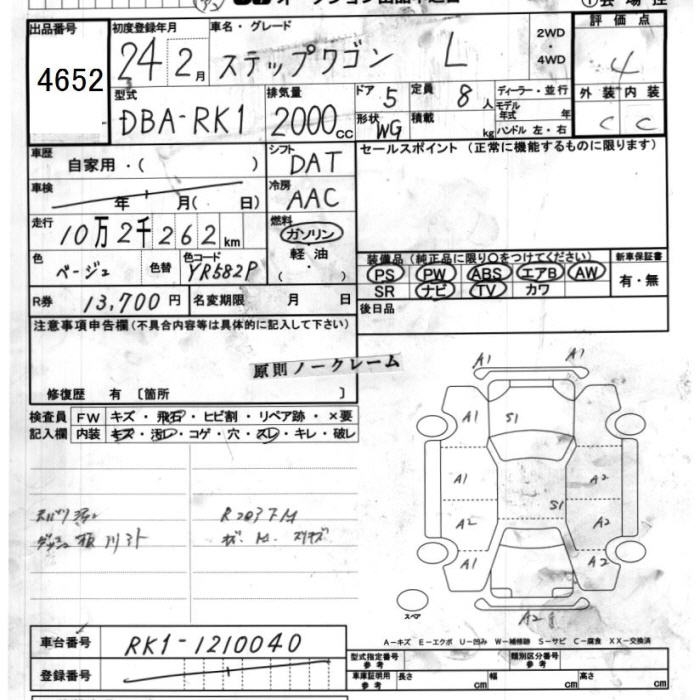 出品番号 初度登録年月 車名・グレード 評価点
4652 24年 2月 ステップワゴン L 2WD・4WD 4
型式 排気量 ドア 5 定員 8人 ディーラー・並行 外装 内装
DBA-RK1 2000cc 形状 WG 積載 kg モデル年式 年 ハンドル 左・右 C C
車歴 自家用・( ) シフト DAT セールスポイント (正常に機能するものに限ります)
車検 年 月( 日) 冷房 AAC
走行 10万2千262km 燃料 ガソリン・軽油・( )
色 ベージュ 色替 色コード YR582P 装備品(純正品に限り○をつけてください) 新車保証書
PS PW ABS エアB AW 有・無
SR ナビ TV カワ
R券 13,700円 名変期限 月 日 後日品
注意事項申告欄(不具合内容等は具体的に記入して下さい)
原則ノークレーム
修復歴 有 〔箇所 〕
検査員 FW キズ・飛石・ヒビ割・リペア跡・×要
記入欄 内装 キズ・汚レ・コゲ・穴・スレ・キレ・破レ
A1 A1
A1 S1
A1 A2
S1
A2 A2
A1 A2
スペア A2
A-キズ E-エクボ U-凹み W-補修跡 S-サビ C-腐食 XX-交換済
車台番号 RK1-1210040
登録番号
型式指定番号 参考 類別区分番号 参考
車庫証明用 参考 長さ cm 幅 cm 高さ cm